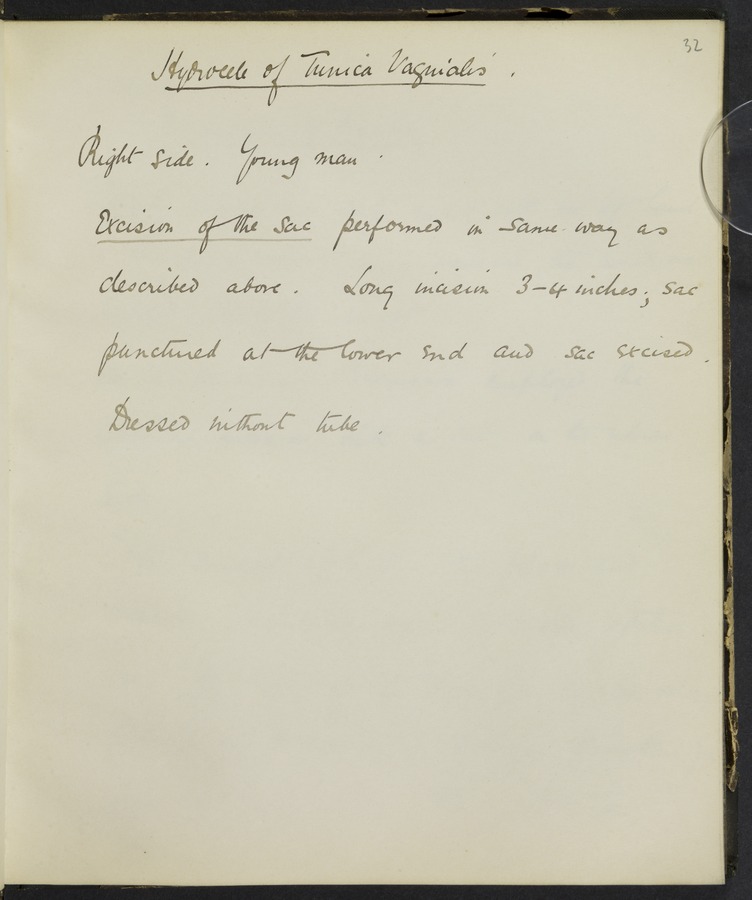 32
Hydrocele of Tunica Vaginalis.
Right side. Young man.
Excision of the sac performed in same way as
described above. Long incision 3-4 inches; sac
punctured at the lower end and sac excised.
Dressed without tube.